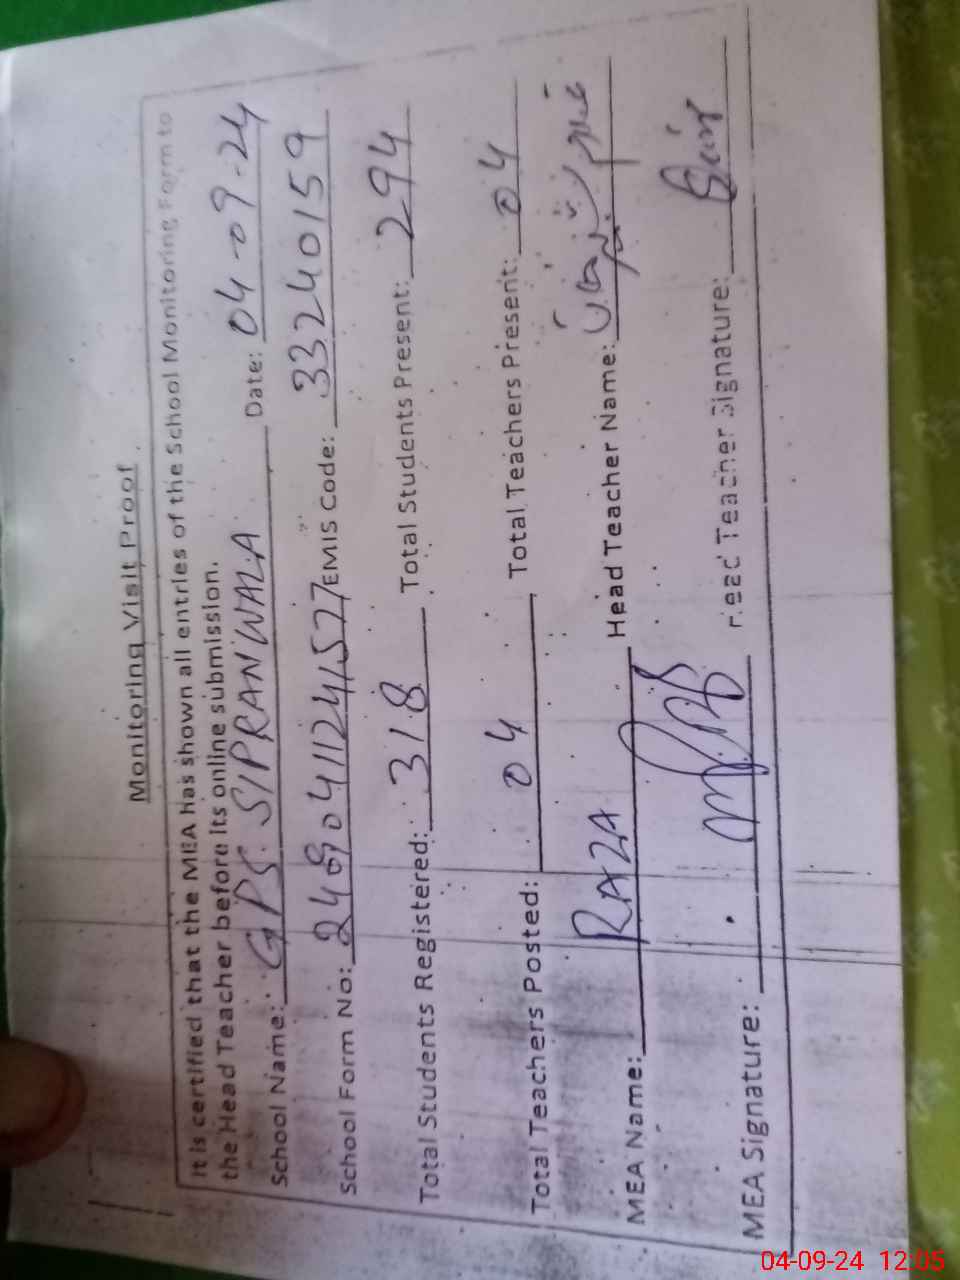 Monitoring Visit Proof
It is certified that the MEA has shown all entries of the School Monitoring Form to
the Head Teacher before its online submission.
School Name: GPS. SIPRANWALA Date: 04-09-24
School Form No: EMIS Code: 33240159
Total Students Registered: 318 Total Students Present: 294
Total Teachers Posted: 04 Total Teachers Present: 04
MEA Name: RAZA Head Teacher Name:
MEA Signature: Head Teacher Signature:
04-09-24 12:05